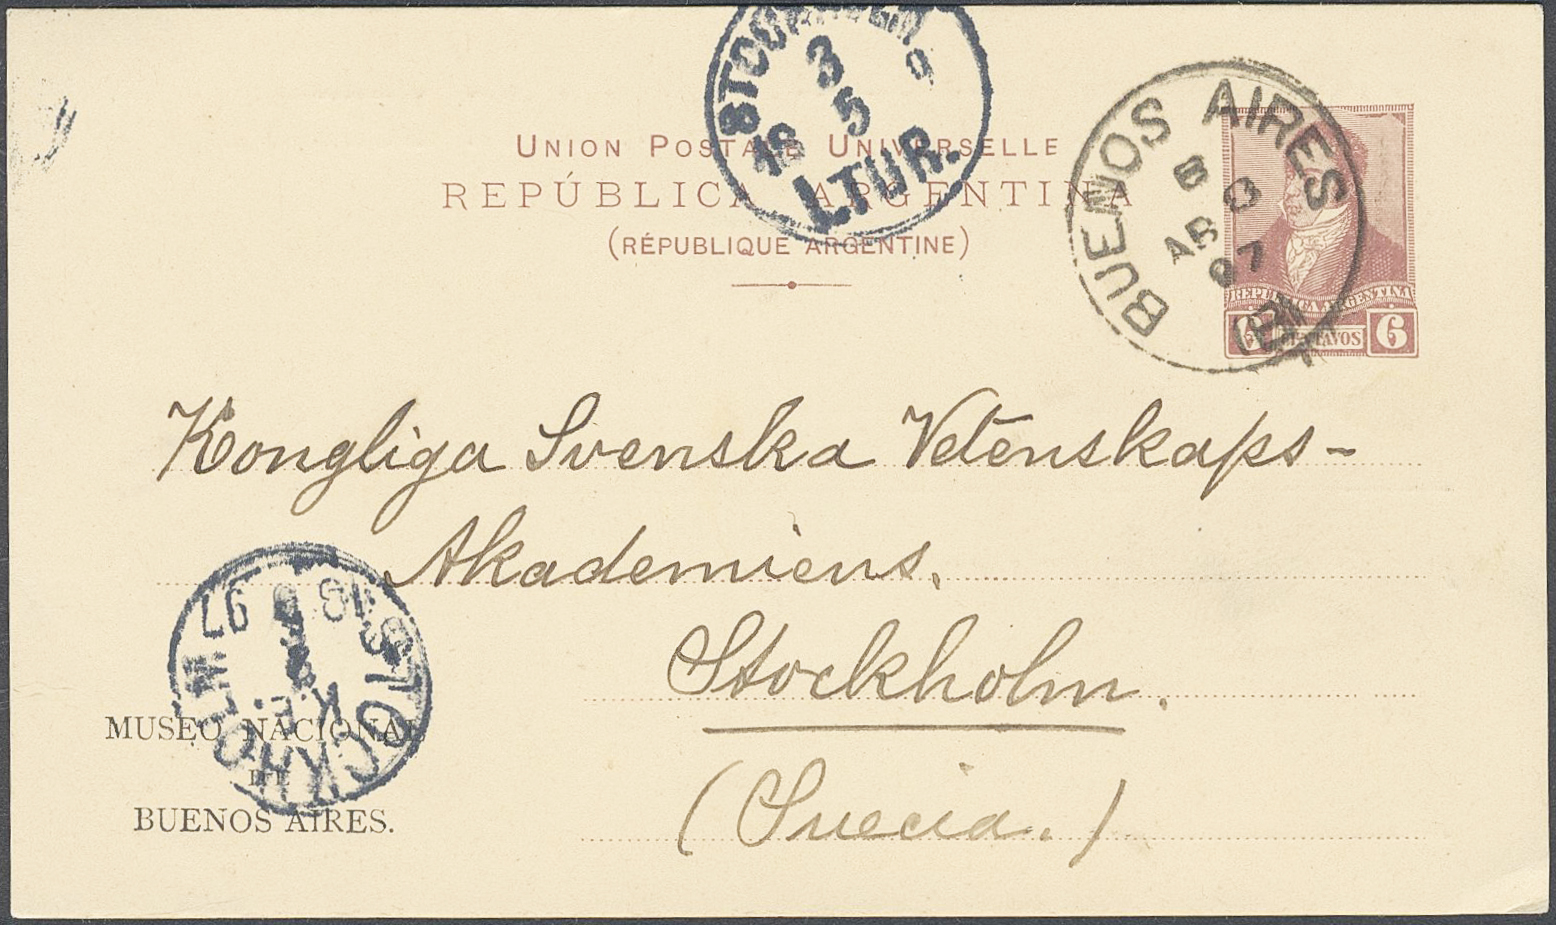 STOCKHOLM
3
5
18
1.TUR.
UNION POSTALE UNIVERSELLE
REPÚBLICA ARGENTINA
(RÉPUBLIQUE ARGENTINE)
BUENOS AIRES
8
AB
97
REPUBLICA ARGENTINA
6 CENTAVOS 6
Kongliga Svenska Vetenskaps-
Akademiens.
Stockholm.
(Suecia.)
STOCKHOLM
97
K.E.
MUSEO NACIONAL
DE
BUENOS AIRES.